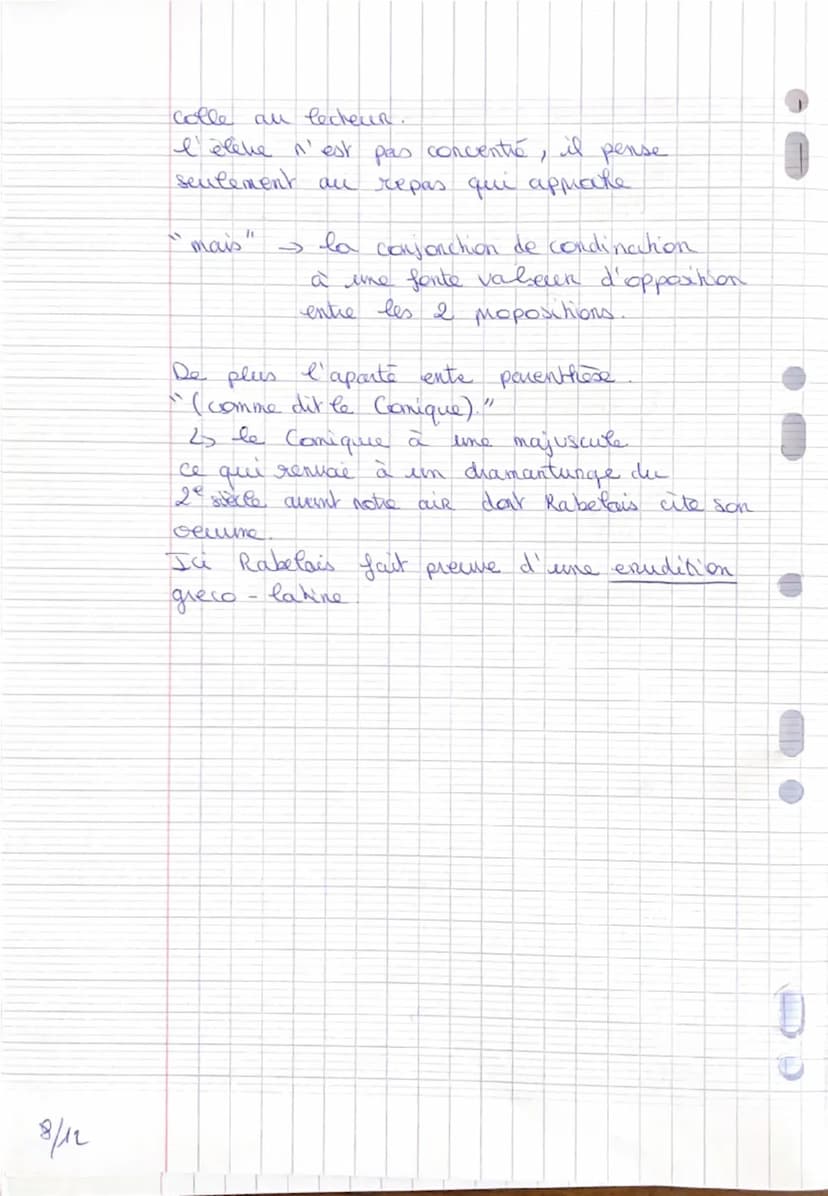 colle au lecteur.
l'élève n'est pas concentré, il pense
seulement au repas qui approche
"mais" → la conjonction de condination
à une forte valeur d'opposition
entre les 2 propositions.
De plus l'aparté ente parenthèse.
"(comme dit le Comique)."
↳ le Comique à une majuscule
ce qui renvoie à un dramantunge du
2e siècle avant notre air dont Rabelais cite son
oeuvre.
Ici Rabelais fait preuve d'une erudition
greco-latine.
8/12